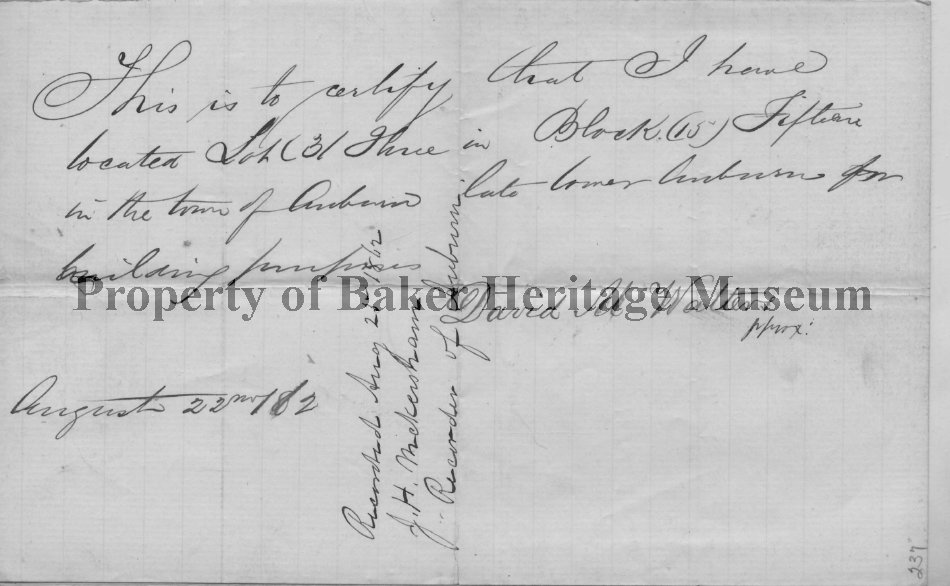 This is to certify that I have
located Lot (3) Three in Block (15) Fifteen
in the town of Auburn late lower Auburn for
building purposes
David M Walters
pprox:
August 22nd 1862
Recorded Aug 1862
J. H. Wickersham
Recorder of Auburn
Property of Baker Heritage Museum
237